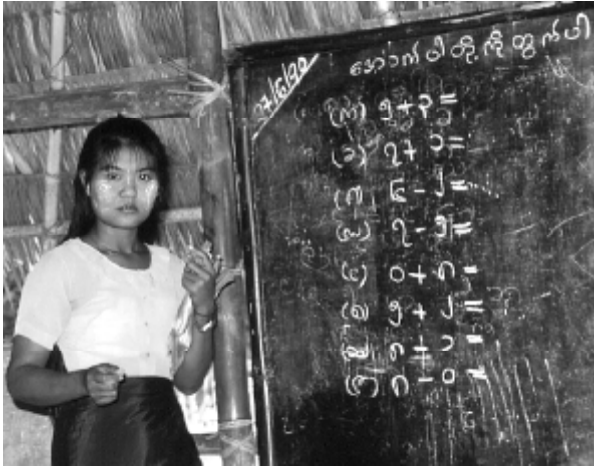 အောက်ပါတို့ကိုတွက်ပါ
(က) ၅+၃=
(ခ) ၇+၁=
(ဂ) ၆-၂=
(ဃ) ၇-၅=
(င) ၀+၈=
(စ) ၅+၂=
(ဆ) ၈+၁=
(ဇ) ၈-၀=